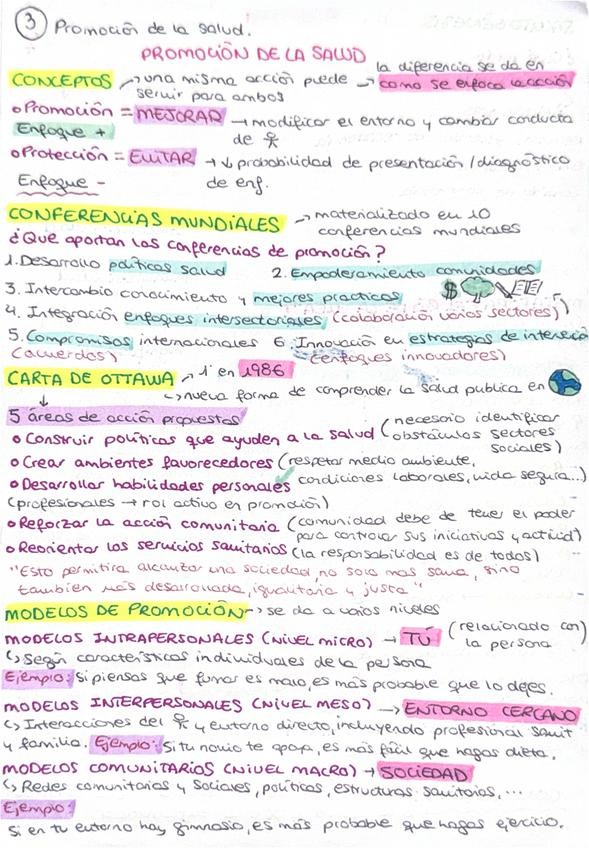 3 Promoción de la salud.
PROMOCIÓN DE LA SALUD
CONCEPTOS → una misma acción puede servir para ambos → la diferencia se da en como se enfoca la acción
• Promoción = MEJORAR → modificar el entorno y cambiar conducta de
Enfoque +
• Protección = EVITAR → ↓ probabilidad de presentación / diagnóstico de enf.
Enfoque -
CONFERENCIAS MUNDIALES → materializado en 10 conferencias mundiales
¿Que aportan las conferencias de promoción?
1. Desarrollo políticas salud 2. Empoderamiento comunidades
3. Intercambio conocimiento y mejores practicas $
4. Integración enfoques intersectoriales (colaboración varios sectores)
5. Compromisos internacionales 6. Innovación en estrategias de interve
(acuerdos) (enfoques innovadores)
CARTA DE OTTAWA → 1ª en 1986
→ nueva forma de comprender la salud publica en
↓
5 áreas de acción propuestas
• Construir políticas que ayuden a la salud (necesario identificar obstáculos sectores sociales)
• Crear ambientes favorecedores (respetar medio ambiente, condiciones laborales, vida segura...)
• Desarrollar habilidades personales
(profesionales → rol activo en promoción)
• Reforzar la acción comunitaria (comunidad debe de tener el poder para controlar sus iniciativas y actitud)
• Reorientar los servicios sanitarios (la responsabilidad es de todos)
"Esto permitira alcanzar una sociedad, no solo mas sana, sino
tambien más desarrollada, igualitaria y justa"
MODELOS DE PROMOCIÓN → se da a varios niveles
MODELOS INTRAPERSONALES (NIVEL MICRO) → TÚ (relacionado con la persona)
↳ Según características individuales de la persona
Ejemplo: Si piensas que fumar es malo, es más probable que lo dejes.
MODELOS INTERPERSONALES (NIVEL MESO) → ENTORNO CERCANO
↳ Interacciones del y entorno directo, incluyendo profesional sanit
y familia. Ejemplo: Si tu novio te apoya, es más fácil que hagas dieta.
MODELOS COMUNITARIOS (NIVEL MACRO) → SOCIEDAD
↳ Redes comunitarias y sociales, políticas, estructuras sanitarias,...
Ejemplo:
Si en tu entorno hay gimnasio, es más probable que hagas ejercicio.